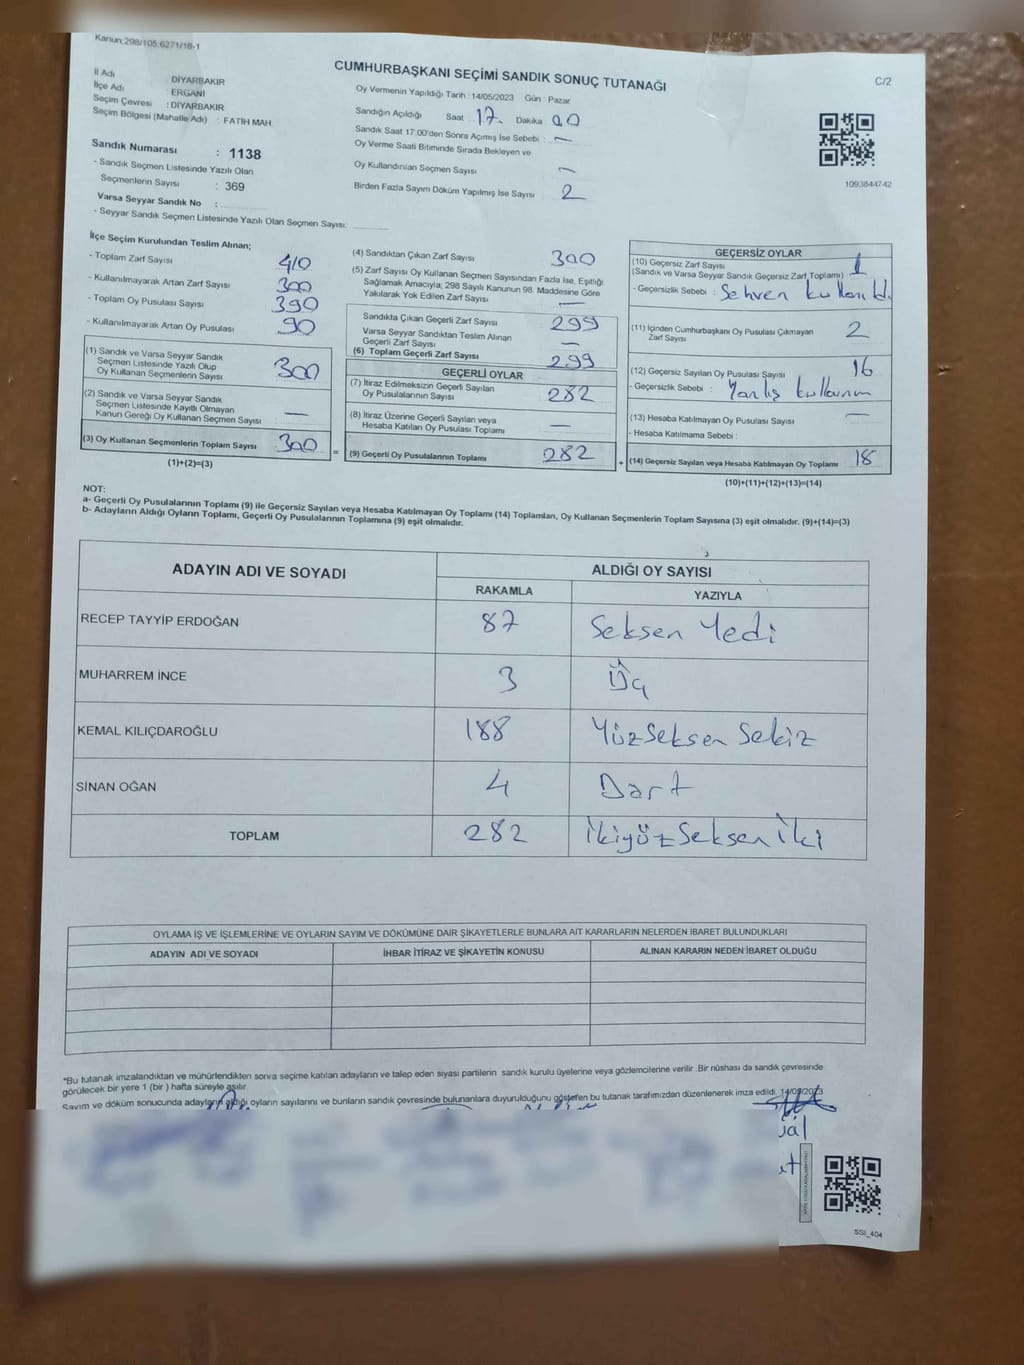 Kanun:298/105,6271/18-1
CUMHURBAŞKANI SEÇİMİ SANDIK SONUÇ TUTANAĞI
C/2
İl Adı DİYARBAKIR
İlçe Adı ERGANİ
Seçim Çevresi : DİYARBAKIR
Seçim Bölgesi (Mahalle Adı) : FATİH MAH.
Sandık Numarası : 1138
- Sandık Seçmen Listesinde Yazılı Olan
Seçmenlerin Sayısı : 369
Varsa Seyyar Sandık No :
- Seyyar Sandık Seçmen Listesinde Yazılı Olan Seçmen Sayısı:
Oy Vermenin Yapıldığı Tarih : 14/05/2023 Gün : Pazar
Sandığın Açıldığı Saat 17. Dakika 00
Sandık Saat 17:00'den Sonra Açımış İse Sebebi : —
Oy Verme Saati Bitiminde Sırada Bekleyen ve
Oy Kullandırılan Seçmen Sayısı —
Birden Fazla Sayım Döküm Yapılmış İse Sayısı 2
1093844742
İlçe Seçim Kurulundan Teslim Alınan;
- Toplam Zarf Sayısı 410
- Kullanılmayarak Artan Zarf Sayısı 300
- Toplam Oy Pusulası Sayısı 390
- Kullanılmayarak Artan Oy Pusulası 90
(1) Sandık ve Varsa Seyyar Sandık
Seçmen Listesinde Yazılı Olup
Oy Kullanan Seçmenlerin Sayısı 300
(2) Sandık ve Varsa Seyyar Sandık
Seçmen Listesinde Kayıtlı Olmayan
Kanun Gereği Oy Kullanan Seçmen Sayısı —
(3) Oy Kullanan Seçmenlerin Toplam Sayısı 300
(1)+(2)=(3)
(4) Sandıktan Çıkan Zarf Sayısı 300
(5) Zarf Sayısı Oy Kullanan Seçmen Sayısından Fazla İse, Eşitliği
Sağlamak Amacıyla; 298 Sayılı Kanunun 98. Maddesine Göre
Yakılarak Yok Edilen Zarf Sayısı —
Sandıkta Çıkan Geçerli Zarf Sayısı 299
Varsa Seyyar Sandıktan Teslim Alınan
Geçerli Zarf Sayısı —
(6) Toplam Geçerli Zarf Sayısı 299
GEÇERLİ OYLAR
(7) İtiraz Edilmeksizin Geçerli Sayılan
Oy Pusulalarının Sayısı 282
(8) İtiraz Üzerine Geçerli Sayılan veya
Hesaba Katılan Oy Pusulası Toplamı —
= (9) Geçerli Oy Pusulalarının Toplamı 282
GEÇERSİZ OYLAR
(10) Geçersiz Zarf Sayısı 1
(Sandık ve Varsa Seyyar Sandık Geçersiz Zarf Toplamı)
- Geçersizlik Sebebi : Sehven
(11) İçinden Cumhurbaşkanı Oy Pusulası Çıkmayan
Zarf Sayısı 2
(12) Geçersiz Sayılan Oy Pusulası Sayısı 16
- Geçersizlik Sebebi : Yanlış kullanım
(13) Hesaba Katılmayan Oy Pusulası Sayısı —
- Hesaba Katılmama Sebebi :
+ (14) Geçersiz Sayılan veya Hesaba Katılmayan Oy Toplamı 18
(10)+(11)+(12)+(13)=(14)
NOT:
a- Geçerli Oy Pusulalarının Toplamı (9) ile Geçersiz Sayılan veya Hesaba Katılmayan Oy Toplamı (14) Toplamları, Oy Kullanan Seçmenlerin Toplam Sayısına (3) eşit olmalıdır. (9)+(14)=(3)
b- Adayların Aldığı Oyların Toplamı, Geçerli Oy Pusulalarının Toplamına (9) eşit olmalıdır.
ADAYIN ADI VE SOYADI
ALDIĞI OY SAYISI
RAKAMLA YAZIYLA
RECEP TAYYİP ERDOĞAN 87 Seksen Yedi
MUHARREM İNCE 3 Üç
KEMAL KILIÇDAROĞLU 188 Yüz Seksen Sekiz
SİNAN OĞAN 4 Dört
TOPLAM 282 İkiyüz Seksen İki
OYLAMA İŞ VE İŞLEMLERİNE VE OYLARIN SAYIM VE DÖKÜMÜNE DAİR ŞİKAYETLERLE BUNLARA AİT KARARLARIN NELERDEN İBARET BULUNDUKLARI
ADAYIN ADI VE SOYADI İHBAR İTİRAZ VE ŞİKAYETİN KONUSU ALINAN KARARIN NEDEN İBARET OLDUĞU
*Bu tutanak imzalandıktan ve mühürlendikten sonra seçime katılan adayların ve talep eden siyasi partilerin sandık kurulu üyelerine veya gözlemcilerine verilir. Bir nüshası da sandık çevresinde
görülecek bir yere 1 (bir) hafta süreyle asılır.
Sayım ve döküm sonucunda adayların aldığı oyların sayılarını ve bunların sandık çevresinde bulunanlara duyurulduğunu gösteren bu tutanak tarafımızdan düzenlenerek imza edildi. 14/05/2023
SSI_404